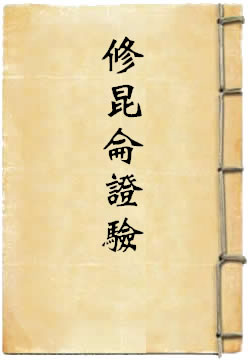 修昆侖證驗